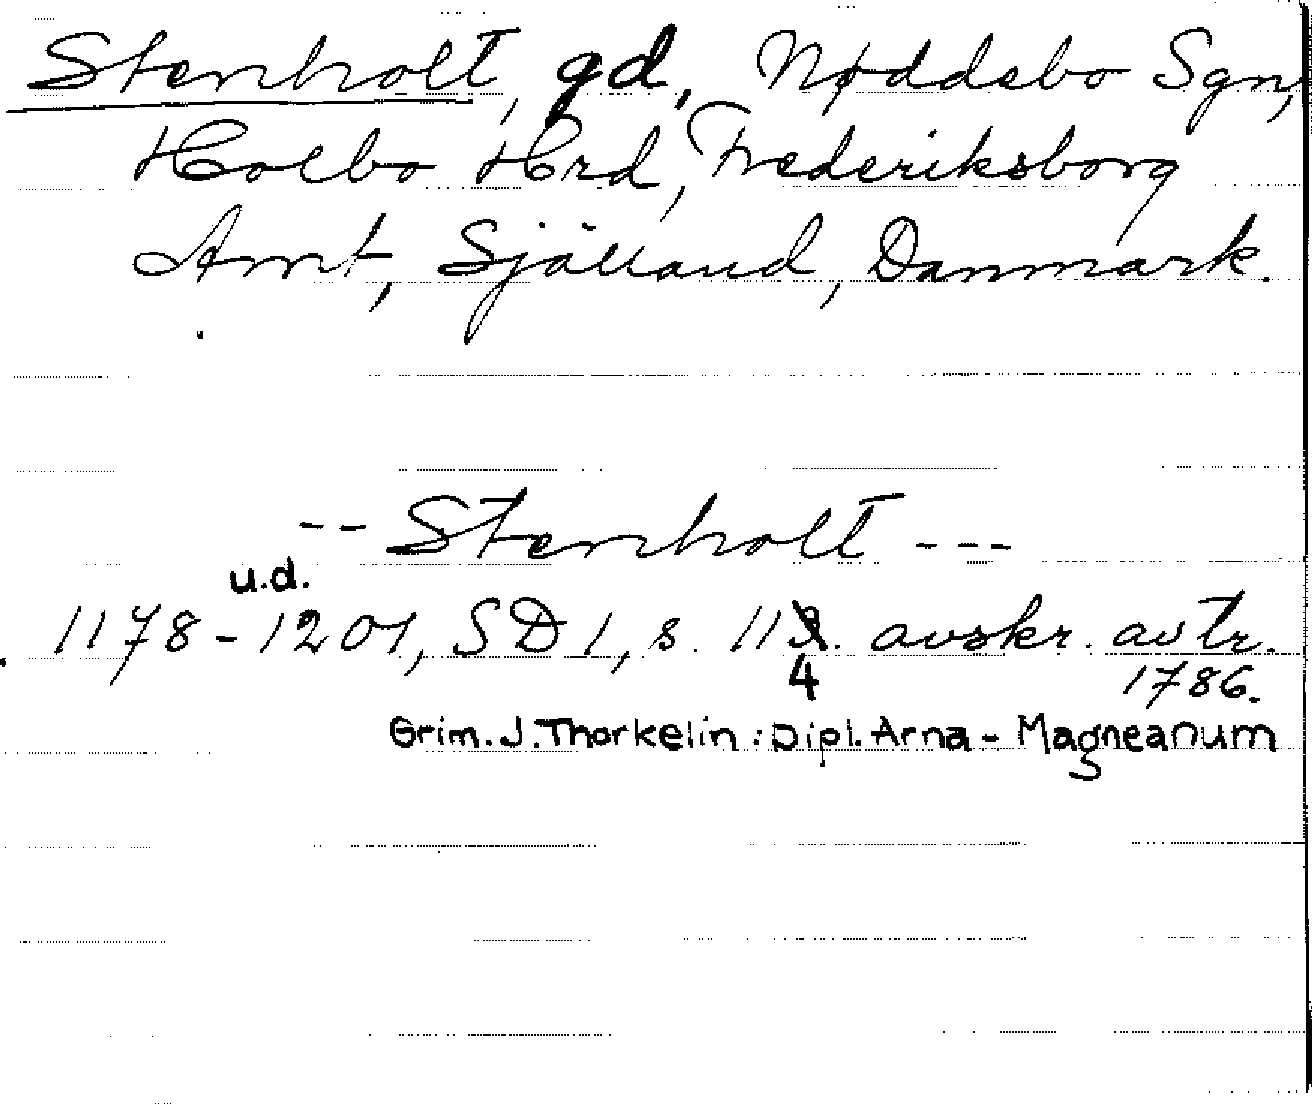 Stenholt, gd, Nøddebo Sgn,
Holbo Hrd, Frederiksborg
Amt, Själland, Danmark.
-- Stenholt ---
u.d.
1178-1201, SD 1, s. 113. avskr. av tr.
4 1786.
Grim. J. Thorkelin: Dipl. Arna-Magneanum